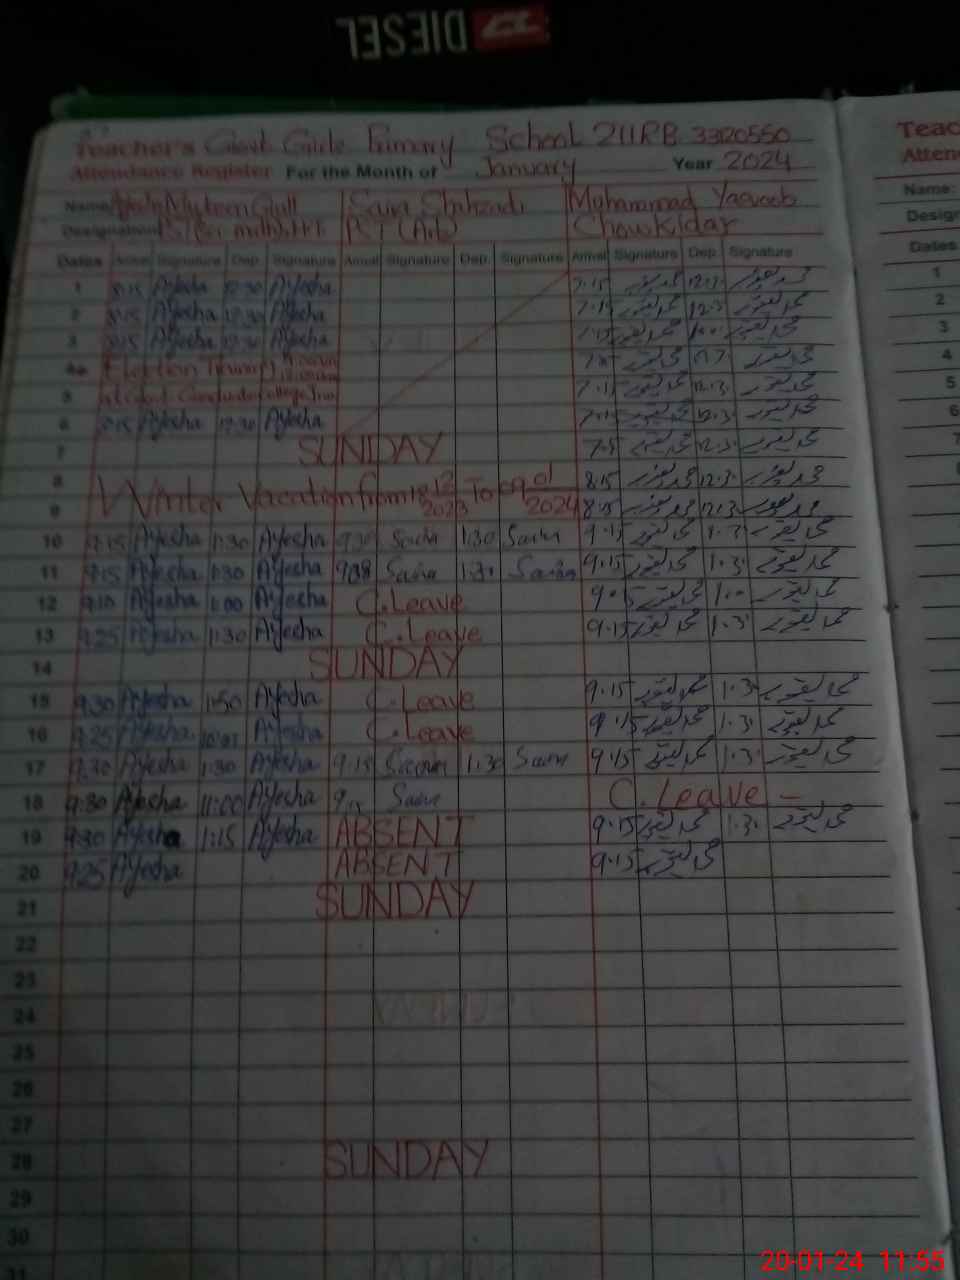 DIESEL
Teacher's Govt Girls Primary School 211RB 3320550
Attendance Register For the Month of January Year 2024
Name Saira Shahzadi Muhammad Yaqoob
Designation PST (Arts) Chowkidar
Dates Arrival Signature Dep. Signature Arrival Signature Dep. Signature Arrival Signature Dep. Signature
1 8:15 Ayesha 12:30 Ayesha 7:15 محمد یعقوب 12:3. محمد یعقوب
2 8:15 Ayesha 12:30 Ayesha 7:15 محمد یعقوب 12:3. محمد یعقوب
3 8:15 Ayesha 12:30 Ayesha 7:15 محمد یعقوب محمد یعقوب
4 Election Training محمد یعقوب محمد یعقوب
5 Graduate College محمد یعقوب 12:3. محمد یعقوب
6 8:15 Ayesha 12:30 Ayesha 7:15 محمد یعقوب 12:3. محمد یعقوب
7 SUNDAY محمد یعقوب 12:3. محمد یعقوب
8 8:15 محمد یعقوب 12:3. محمد یعقوب
Winter Vacation from 18 12/2023 To 09 01/2024
9 8:15 محمد یعقوب 12:3. محمد یعقوب
10 9:15 Ayesha 1:30 Ayesha 9:30 Saira 1:30 Saira 9:15 محمد یعقوب 1:3. محمد یعقوب
11 9:15 Ayesha 1:30 Ayesha Saira 1:3. Saira 9:15 محمد یعقوب 1:3. محمد یعقوب
12 9:10 Ayesha 1:00 Ayesha C.Leave 9:15 محمد یعقوب 1:.. محمد یعقوب
13 9:25 Ayesha 1:30 Ayesha C.Leave 9:15 محمد یعقوب 1:3. محمد یعقوب
14 SUNDAY
15 9:30 Ayesha 1:50 Ayesha C.Leave 9:15 محمد یعقوب 1:3. محمد یعقوب
16 9:25 Ayesha Ayesha C.Leave 9:15 محمد یعقوب 1:3. محمد یعقوب
17 9:30 Ayesha 1:30 Ayesha 9:15 Saira 1:30 Saira 9:15 محمد یعقوب 1:3. محمد یعقوب
18 9:30 Ayesha 11:00 Ayesha 9:15 Saira C. Leave -
19 9:30 Ayesha 1:15 Ayesha ABSENT 9:15 محمد یعقوب 1:3. محمد یعقوب
20 9:25 Ayesha ABSENT 9:15 محمد یعقوب
21 SUNDAY
22
23
24
25
26
27
28 SUNDAY
29
30
31
Teac
Atten
Name:
Design
Dates
1
2
3
4
5
6
7
20-01-24 11:55